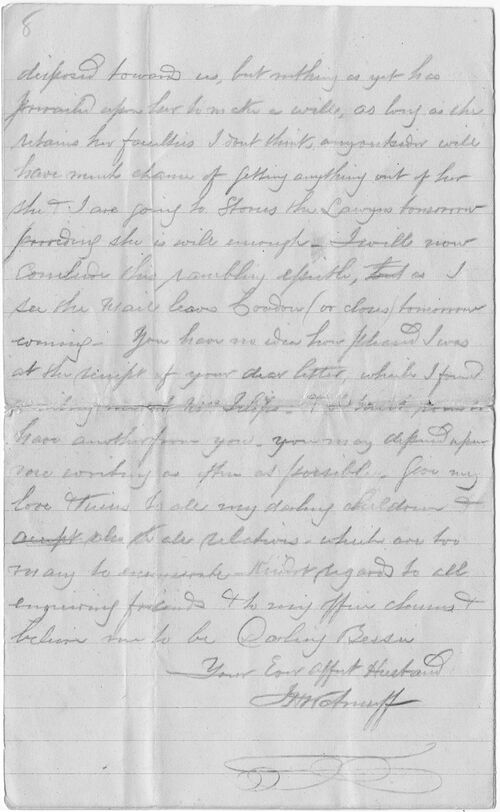 8
disposed towards us, but nothing as yet has
prevailed upon her to make a will, as long as she
retains her faculties I dont think any outsider will
have much chance of getting anything out of her
She & I are going to Stones the Lawyers tomorrow
providing she is well enough - I will now
conclude this rambling epistle, as I
see the Mail leaves London (or closes) tomorrow
evening. You have no idea how pleased I was
at the receipt of your dear letter, which I found
awaiting me at
have another from you - you may depend upon
me writing as often as possible. Give my
love & kisses to all my darling children &
accept also to all relations - which are too
many to enumerate - Kindest regards to all
enquiring friends & to my office chums &
believe me to be Darling Bessie
Your Ever Affect Husband